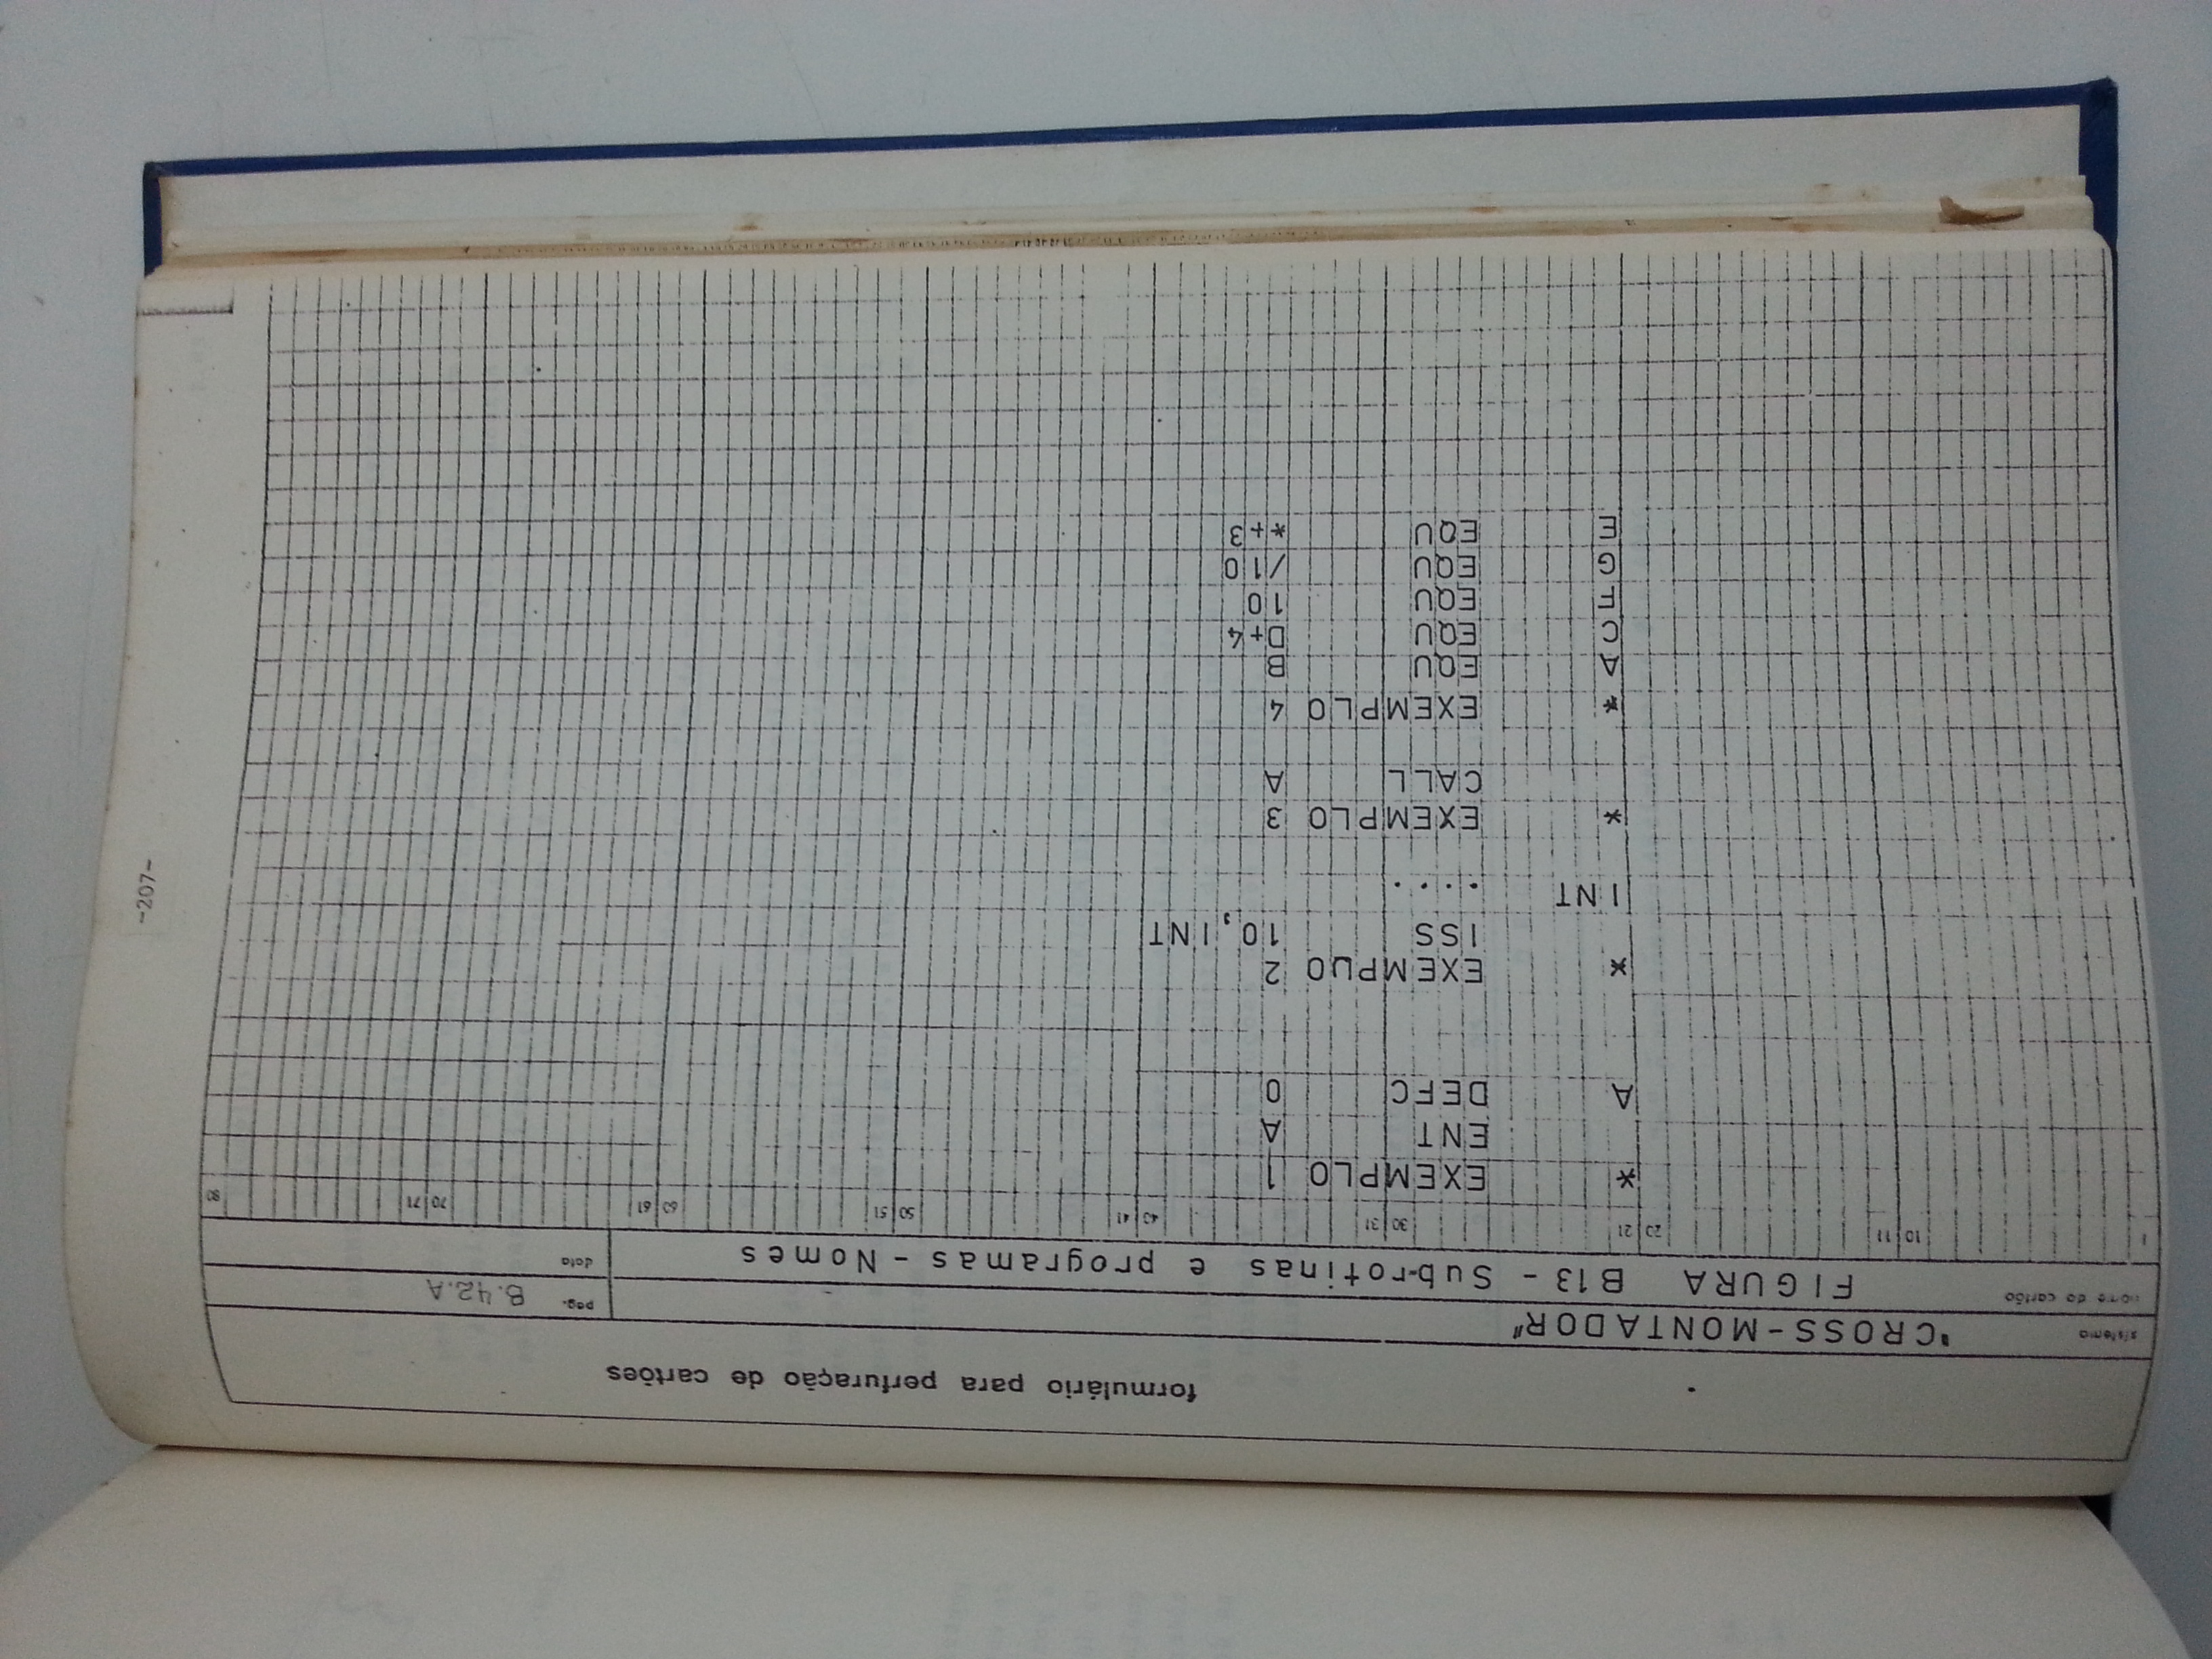 -207-
formulário para perfuração de cartões
sistema "CROSS-MONTADOR" pag. B.42.A
nome do cartão FIGURA B13 - Sub-rotinas e programas - Nomes data
1 10 11 20 21 30 31 40 41 50 51 60 61 70 71 80
* EXEMPLO 1
ENT A
A DEFC 0
* EXEMPLO 2
ISS 10,INT
INT .....
* EXEMPLO 3
CALL A
* EXEMPLO 4
A EQU B
C EQU D+4
F EQU 10
G EQU /10
E EQU *+3